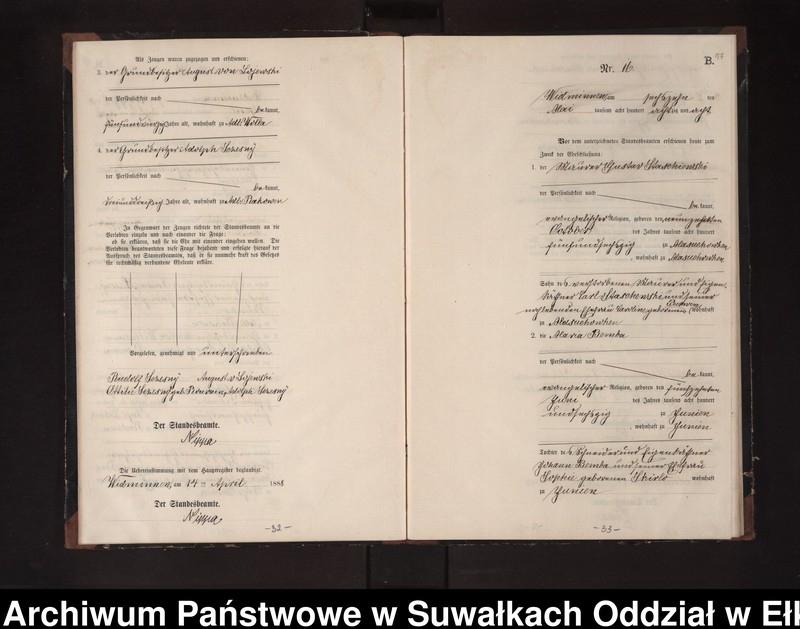 Als Zeugen waren zugezogen und erschienen:
3. der Grundbesitzer August von Lojewski
der Persönlichkeit nach
be kannt,
fünfundvierzig Jahre alt, wohnhaft zu Adl. Wolla
4. der Grundbesitzer Adolph Sczesny
der Persönlichkeit nach
be kannt,
dreiunddreißig Jahre alt, wohnhaft zu Adl. Rakowen
In Gegenwart der Zeugen richtete der Standesbeamte an die
Verlobten einzeln und nach einander die Frage:
ob sie erklären, daß sie die Ehe mit einander eingehen wollen. Die
Verlobten beantworteten diese Frage bejahend und erfolgte hierauf der
Ausspruch des Standesbeamten, daß er sie nunmehr kraft des Gesetzes
für rechtmäßig verbundene Eheleute erkläre.
Vorgelesen, genehmigt und unterschrieben
Rudolf Sczesny August v Lojewski
Ottilie Sczesny geb. Adolph Sczesny
Der Standesbeamte.
Nippa
Die Uebereinstimmung mit dem Hauptregister beglaubigt.
Widminnen, am 14 ten April 1888
Der Standesbeamte.
Nippa
-32-
B.
Nr. 16
Widminnen, am sechszehn ten
Mai tausend acht hundert achtzig und acht
Vor dem unterzeichneten Standesbeamten erschienen heute zum
Zweck der Eheschließung:
1. der Maurer Gustav Staschewski
der Persönlichkeit nach
be kannt,
evangelischer Religion, geboren den neunzehnten
October des Jahres tausend acht hundert
fünfundsechszig zu Masuchowken
, wohnhaft zu Masuchowken
Sohn des verstorbenen Maurer und Eigen
käthner Carl Staschewski und seiner
nachlebenden Ehefrau Caroline geborenen wohnhaft
zu Masuchowken
2. die Maria Bemba
der Persönlichkeit nach
be kannt,
evangelischer Religion, geboren den fünfzehnten
Juni des Jahres tausend acht hundert
undsechszig zu Junien
, wohnhaft zu Junien
Tochter des Schneider und Eigenkäthner
Johann Bemba und seiner Ehefrau
Sophie geborenen Skirlo wohnhaft
zu Junien
-33-
Archiwum Państwowe w Suwałkach Oddział w Ełk